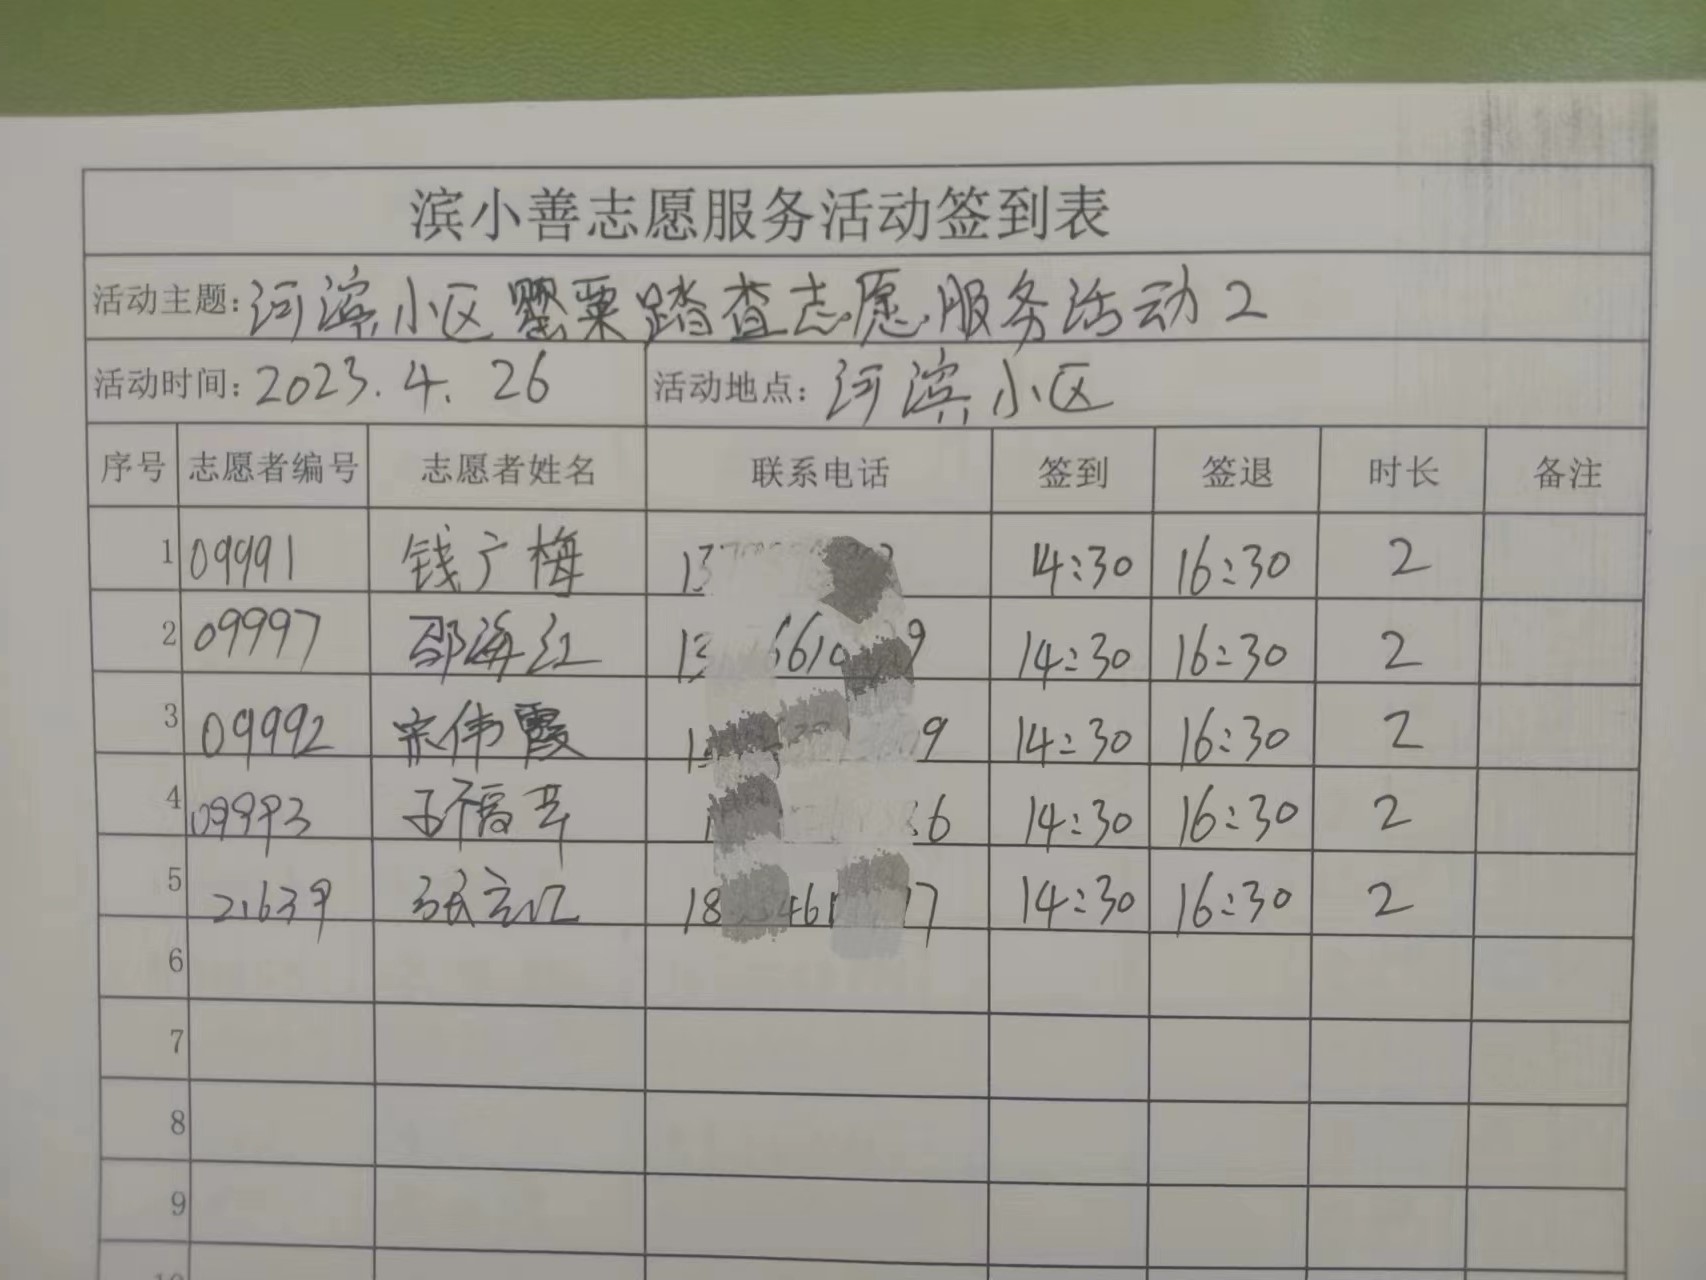 滨小善志愿服务活动签到表
活动主题：河滨小区罂粟踏查志愿服务活动2
活动时间：2023.4.26 活动地点：河滨小区
序号 志愿者编号 志愿者姓名 联系电话 签到 签退 时长 备注
1 09991 钱广梅 14:30 16:30 2
2 09997 邵海红 14:30 16:30 2
3 09992 宋伟霞 14:30 16:30 2
4 09993 14:30 16:30 2
5 21639 14:30 16:30 2
6
7
8
9